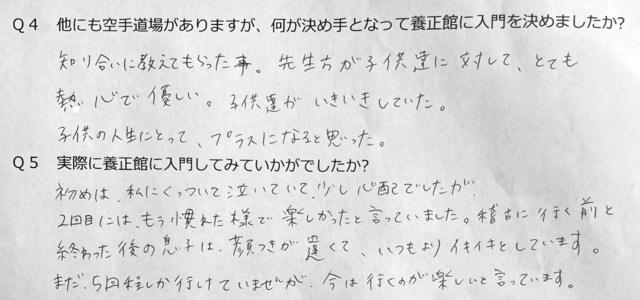 Q4 他にも空手道場がありますが、何が決め手となって養正館に入門を決めましたか?
知り合いに教えてもらった事。先生方が子供達に対して、とても
熱心で優しい。子供達がいきいきしていた。
子供の人生にとって、プラスになると思った。
Q5 実際に養正館に入門してみていかがでしたか?
初めは、私にくっついて泣いていて、少し心配でしたが、
2回目には、もう慣れた様で楽しかったと言っていました。稽古に行く前と
終わった後の息子は、顔つきが違くて、いつもよりイキイキとしています。
まだ、5回程しか行けていませんが、今は行くのが楽しいと言っています。